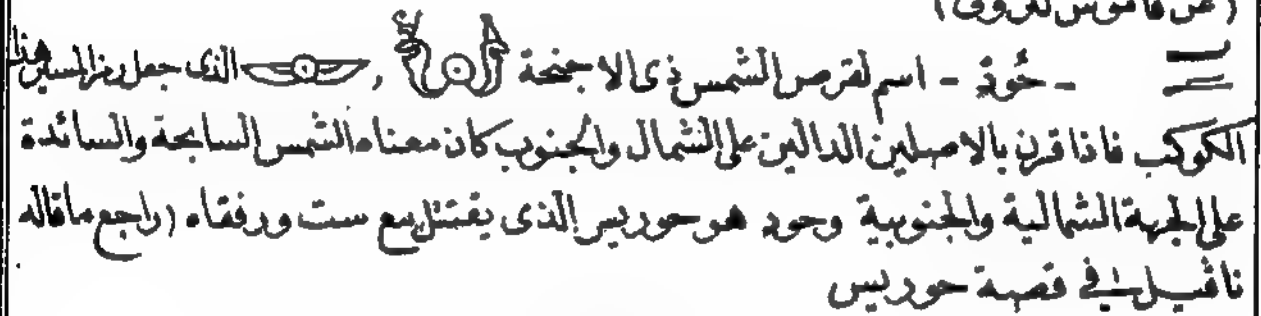 (عن قاموس لفروى)
- حُودٌ - اسم لقرص الشمس ذى الاجنحة , الذى جعل رمزا لسير هذا
الكوكب فاذا قرن بالاصلين الدالين على الشمال والجنوب كان معناه الشمس السابحة والسائدة
على الجهة الشمالية والجنوبية وحود هو حوريس الذى يقتتل مع ست ورفقاه (راجع ماقاله
ناڤيل فى قصة حوريس